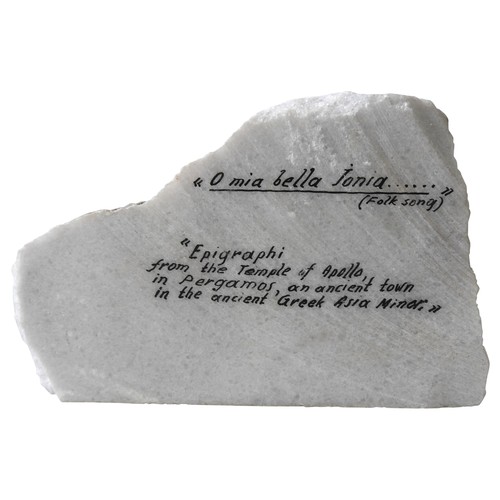 « O mia bella Ionia...... »
(Folk song)
"Epigraphi
from the Temple of Apollo,
in Pergamos, an ancient town
in the ancient Greek Asia Minor. »